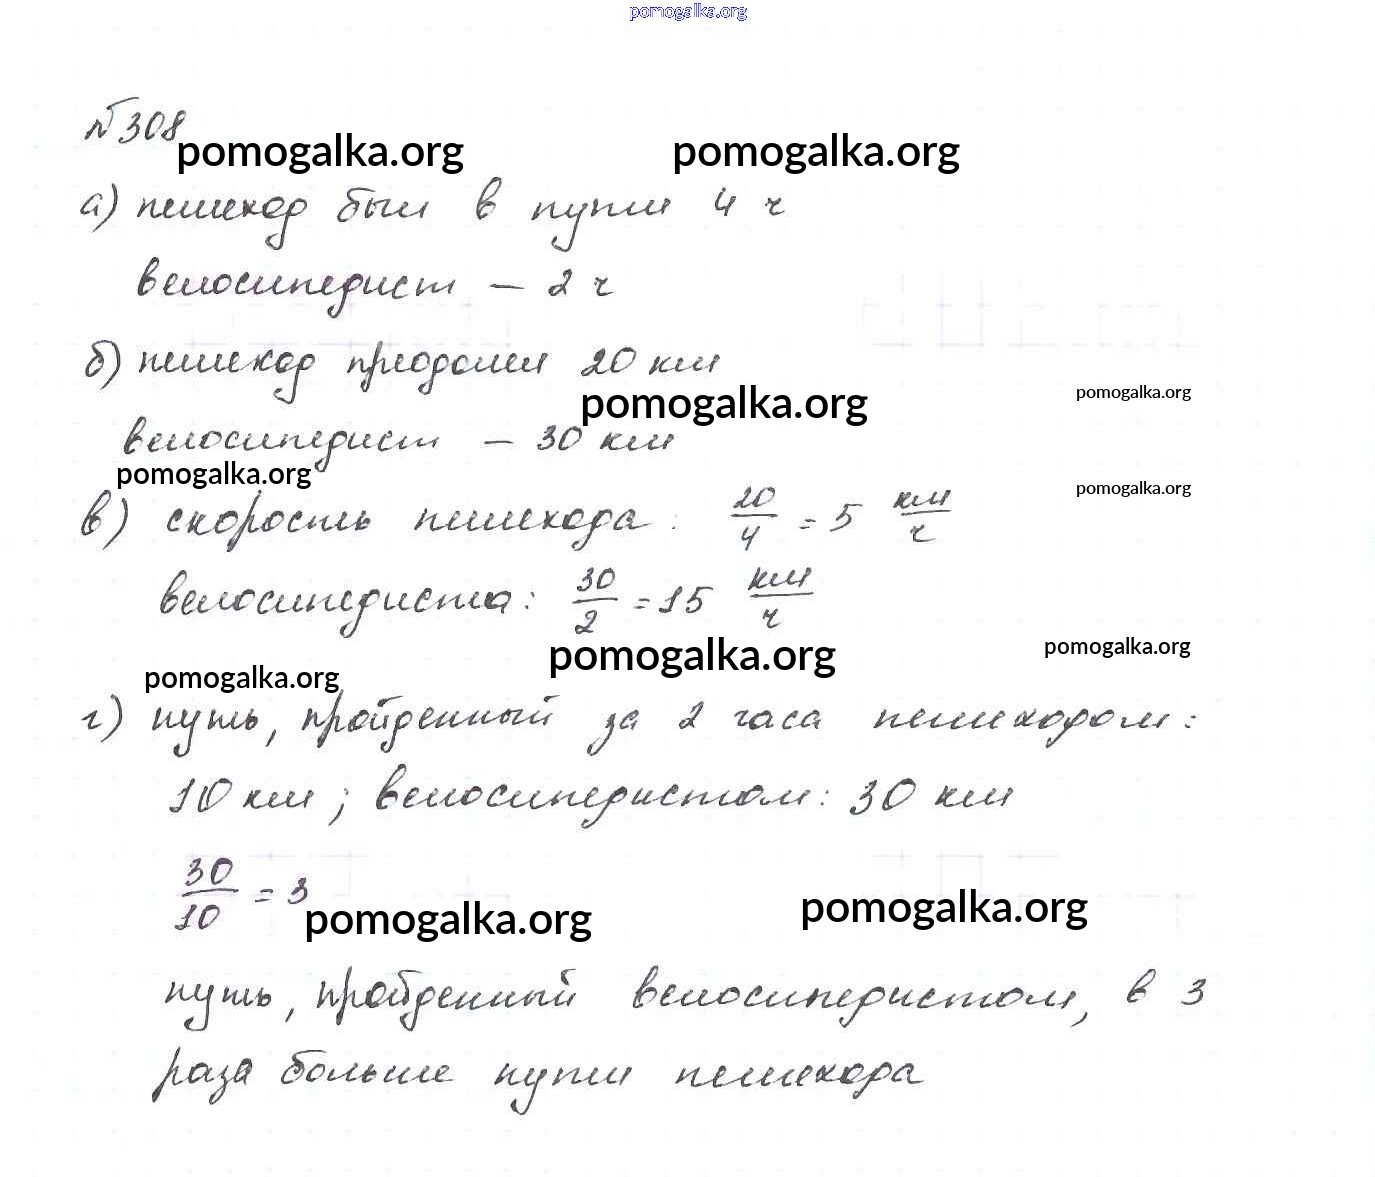 pomogalka.org
№308
pomogalka.org pomogalka.org
а) пешеход был в пути 4 ч
велосипедист – 2 ч
б) пешеход преодолел 20 км
pomogalka.org pomogalka.org
велосипедист – 30 км
pomogalka.org pomogalka.org
в) скорость пешехода: 20/4 = 5 км/ч
велосипедиста: 30/2 = 15 км/ч
pomogalka.org pomogalka.org
pomogalka.org
г) путь, пройденный за 2 часа пешеходом:
10 км; велосипедистом: 30 км
30/10 = 3
pomogalka.org pomogalka.org
путь, пройденный велосипедистом, в 3
раза больше пути пешехода